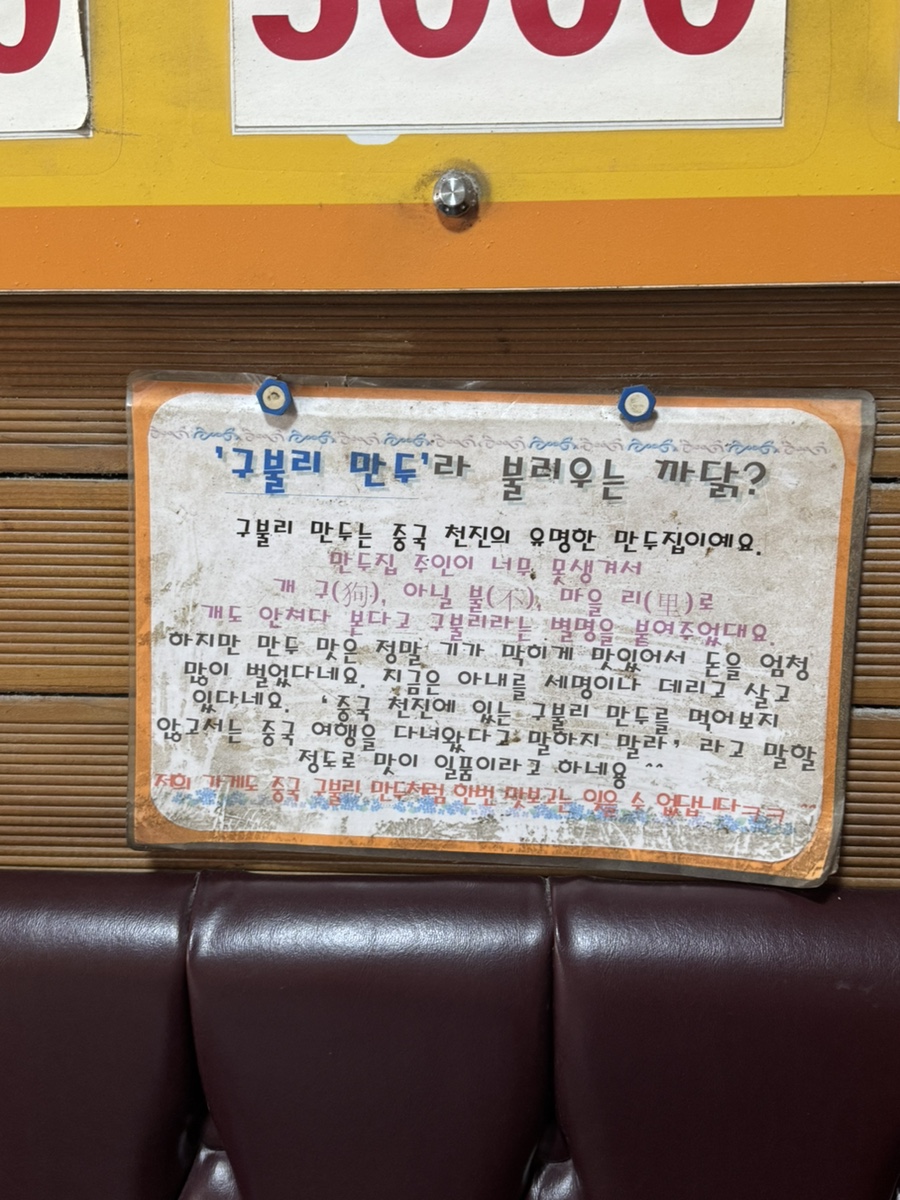 5000
'구불리 만두'라 불리우는 까닭?
구불리 만두는 중국 천진의 유명한 만두집이예요.
만두집 주인이 너무 못생겨서
개 구(狗), 아닐 불(不), 마을 리(里)로
개도 안쳐다 본다고 구불리라는 별명을 붙여주었대요.
하지만 만두 맛은 정말 기가 막히게 맛있어서 돈을 엄청
많이 벌었다네요. 지금은 아내를 세명이나 데리고 살고
있다네요. '중국 천진에 있는 구불리 만두를 먹어보지
않고서는 중국 여행을 다녀왔다고 말하지 말라' 라고 말할
정도로 맛이 일품이라고 하네용 ^^
저희 가게도 중국 구불리 만두처럼 한번 맛보고는 잊을 수 없답니다ㅋㅋ ^^